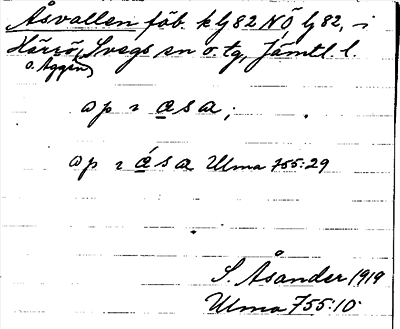 Åsvallen fäb. k lj 82 N Ö lj 82, i
Härrö, Svegs sn o. tg, Jämtl. l.
o. Äggen
a p ı a s a ;
a p ı á s a Ulma 755:29
S. Åsander 1919
Ulma 755:10